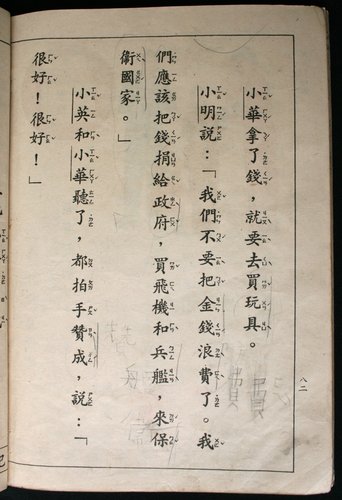 小華拿了錢，就要去買玩具。
小明說：「我們不要把金錢浪費了。我
們應該把錢捐給政府，買飛機和兵艦，來保
衛國家。」
小英和小華聽了，都拍手贊成，說：「
很好！很好！」
八二